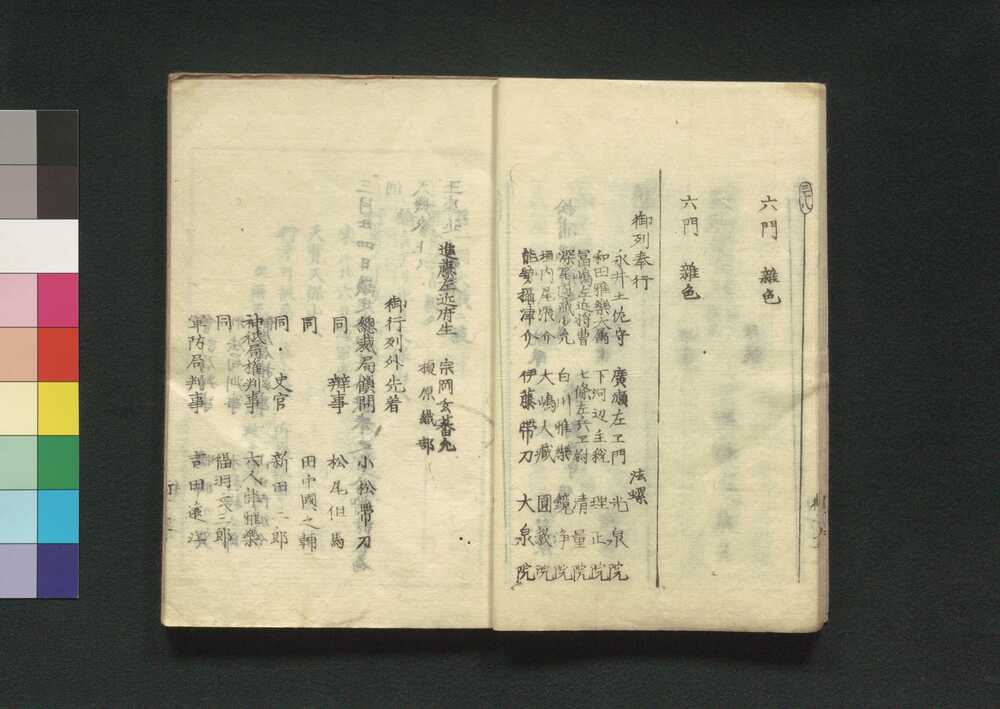 三十八
六門 雜色
六門 雜色
御列奉行
法螺
永井土佐守 廣瀬左ヱ門 光泉院
和田雅樂大属 下河辺主税 理正院
冨嶋左近将曹 七條左兵ヱ尉 清量院
深尾内藏少允 白川雅樂 鏡浄院
堀内尾張介 大嶋大藏 圓教院
能勢攝津介 伊藤帶刀 大泉院
進藤左近府生 宗岡玄蕃允
頓原織部
御行列外先着
總裁局顧問 小松帶刀
同 辨事 松尾但馬
同 田中國之輔
同・史官 新田三郎
神祇局権判事 六人部雅樂
同 福羽文三郎
軍防局判事 吉田遠江